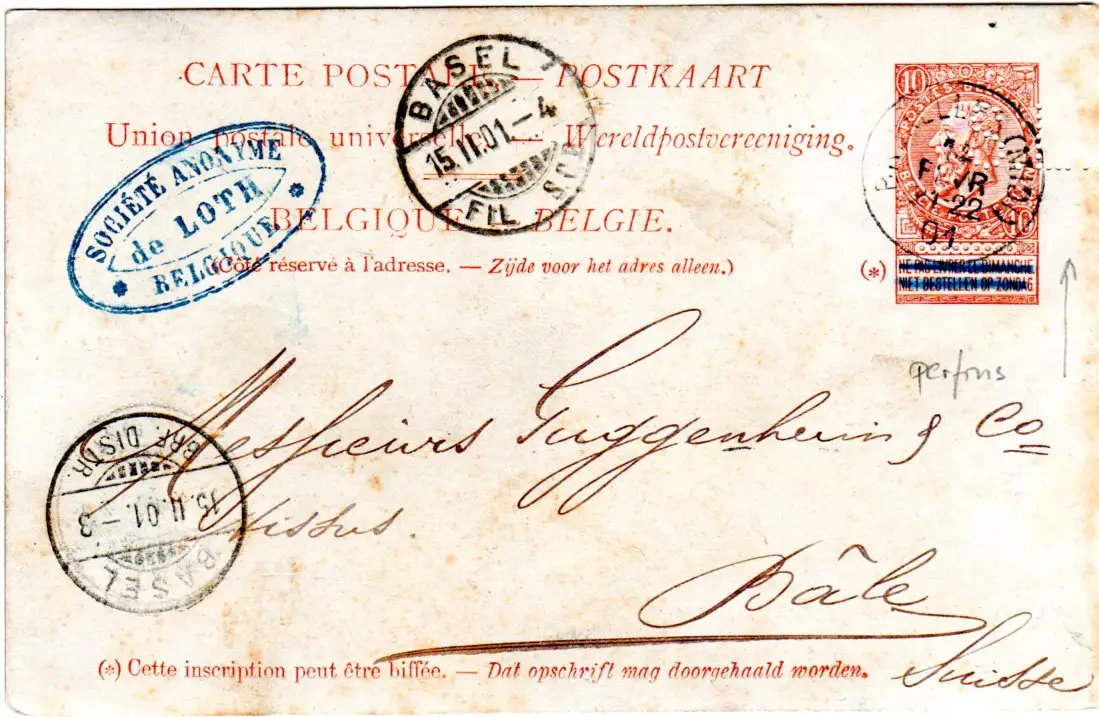 CARTE POSTALE — POSTKAART
Union postale universelle. — Wereldpostvereeniging.
BELGIQUE — BELGIE.
(Côté réservé à l'adresse. — Zijde voor het adres alleen.)
SOCIÉTÉ ANONYME
de LOTH
BELGIQUE
BASEL
15.II.01.–4
FIL
10
10
(MIDI)
FEVR
22
01
(*) NE PAS LIVRER LE DIMANCHE
NIET BESTELLEN OP ZONDAG
perfins
Messieurs Guggenheim & Co
Tissus
Bâle
Suisse
BASEL
15.II.01.–3
BRF. DISTR.
(*) Cette inscription peut être biffée. — Dat opschrift mag doorgehaald worden.